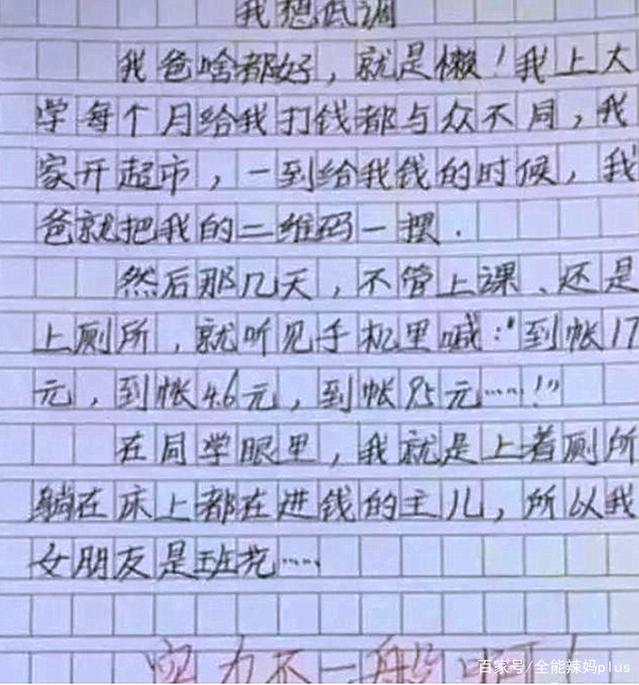 我想低调
我爸啥都好，就是懒！我上大
学每个月给我打钱都与众不同，我
家开超市，一到给我钱的时候，我
爸就把我的二维码一摆．
然后那几天，不管上课、还是
上厕所，就听见手机里喊："到帐17
元，到帐4.6元，到帐95元……！"
在同学眼里，我就是上着厕所
躺在床上都在进钱的主儿，所以我
女朋友是班花……
实力不一般
百家号/全能辣妈plus